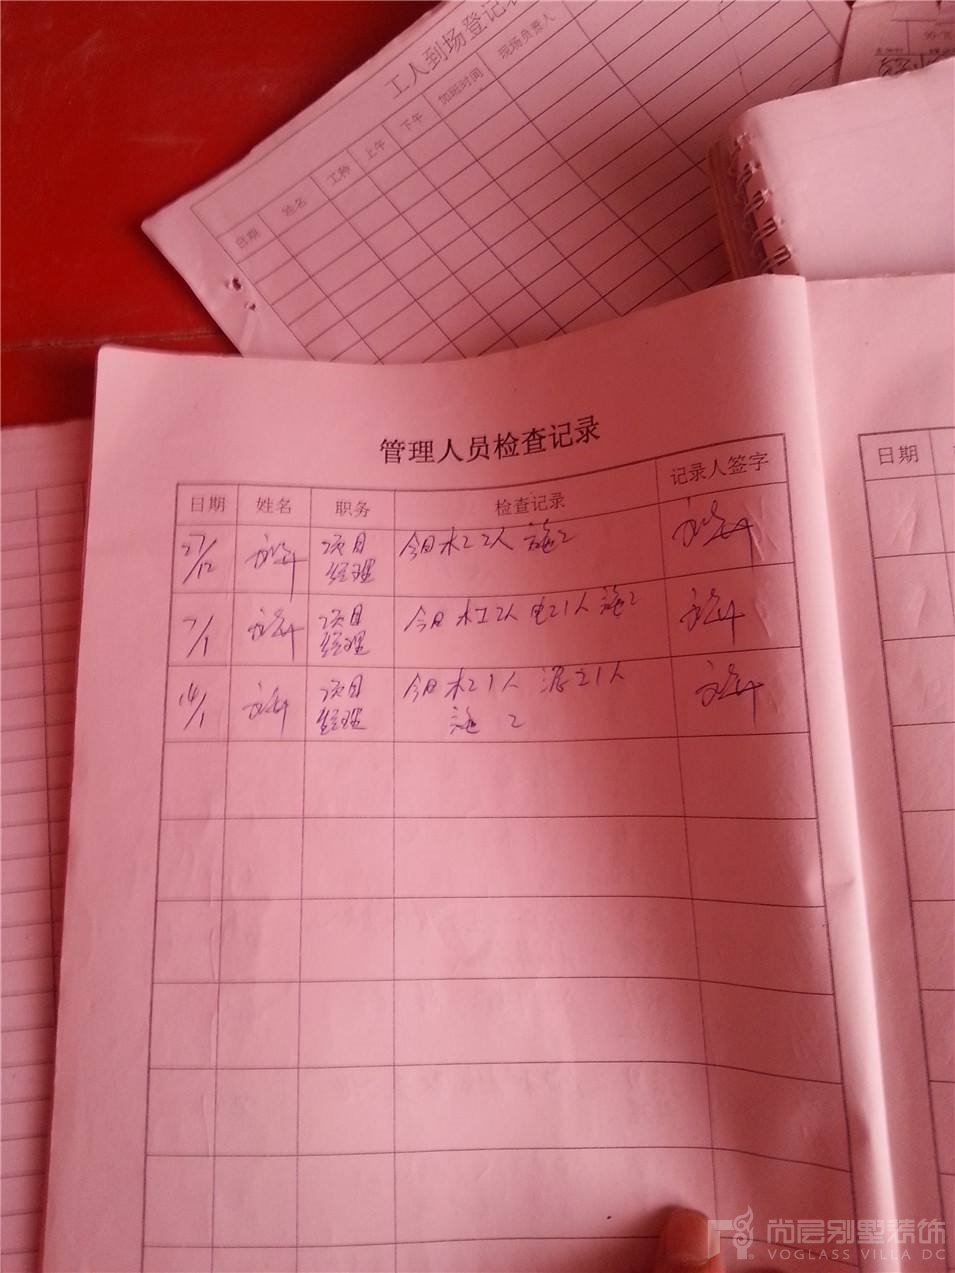 工人到场登记表
日期 姓名 工种 上午 下午 加班时间 现场负责人
管理人员检查记录
日期 姓名 职务 检查记录 记录人签字
27/12 项目经理 今日木工2人 施工
7/1 项目经理 今日木工2人 电工1人 施工
14/1 项目经理 今日木工1人 泥工1人
施工
日期
尚层别墅装饰
VOGLASS VILLA DC